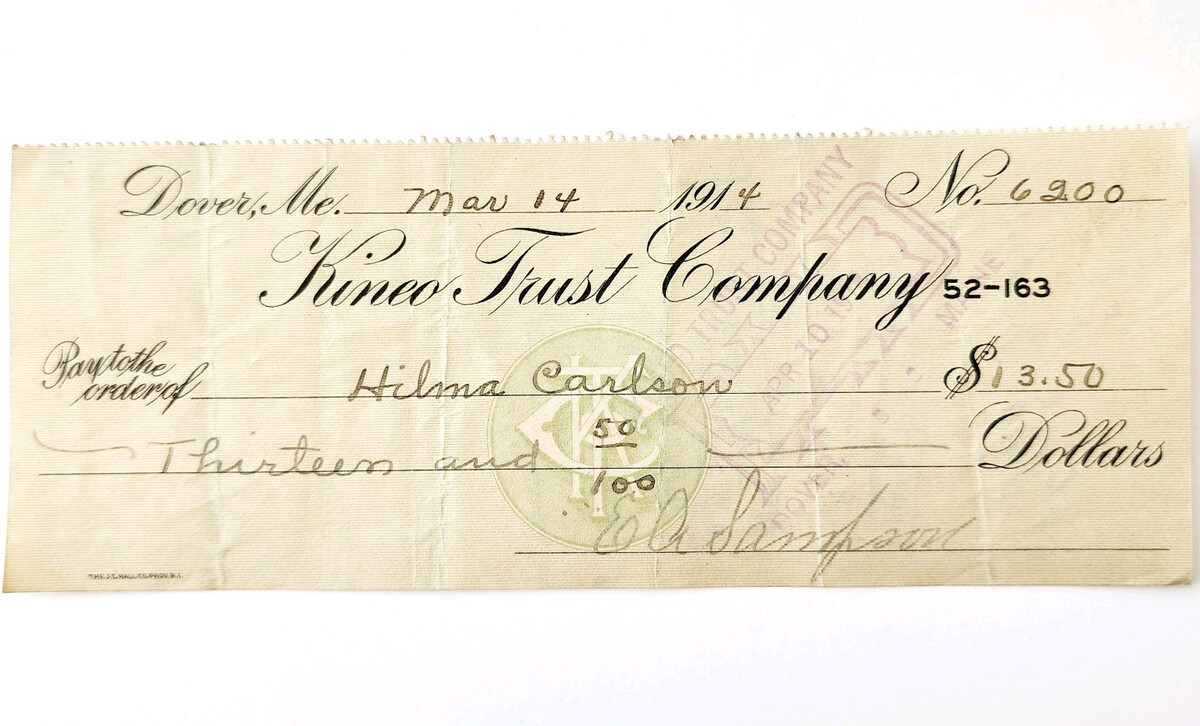 Dover, Me. Mar 14 1914 No. 6200
Kineo Trust Company 52-163
Pay to the order of Hilma Carlson $13.50
Thirteen and 50/100 Dollars
E A Sampson
THE J.C. HALL CO. PROV. R.I.
TRUST COMPANY
PAID
APR 10 19
DOVER, MAINE